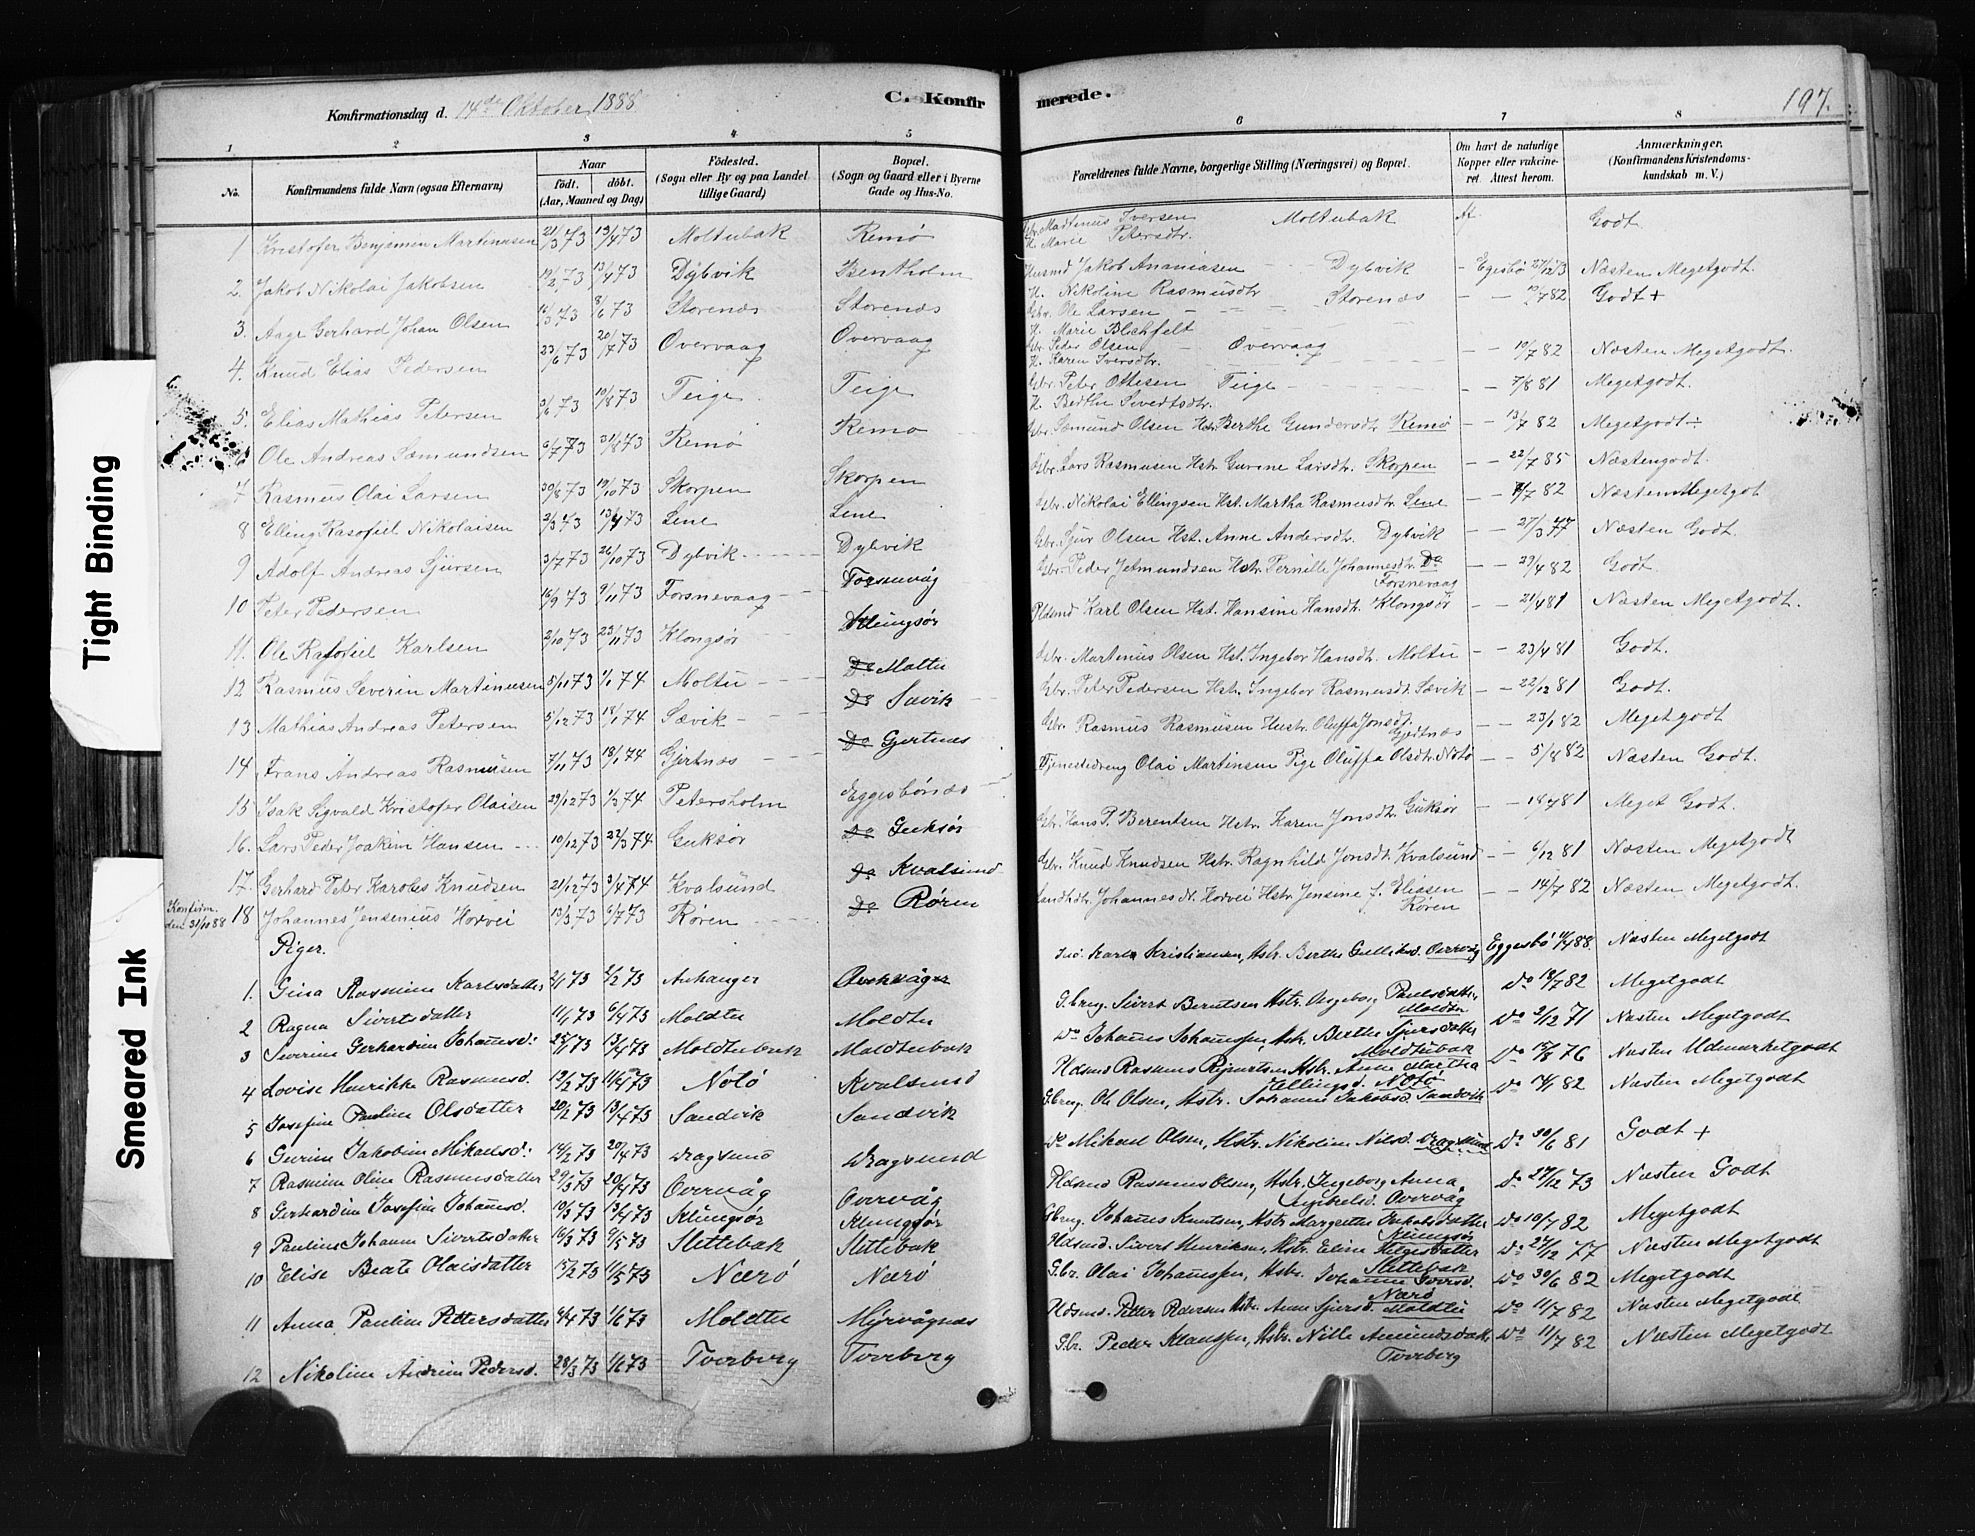 Konfirmationsdag d. 14de Oktober 1888.
C. Konfirmerede.
197.
1 2 3 4 5 6 7 8
No.
Konfirmandens fulde Navn (ogsaa Efternavn)
Naar
födt. döbt.
(Aar, Maaned og Dag)
Födested.
(Sogn eller By og paa Landet
tillige Gaard)
Bopæl.
(Sogn og Gaard eller i Byerne
Gade og Hus-No.
Forældrenes fulde Navne, borgerlige Stilling (Næringsvei) og Bopæl.
Om havt de naturlige
Kopper eller vakcine-
ret. Attest herom.
Anmærkninger.
(Konfirmandens Kristendoms-
kundskab m. V.)
1 Kristofer Benjamin Martinusen 21/3 73 19/4 73 Moltubak Remø Gbr. Martinus Iversen H. Marie Petersdtr. Moltubak Godt
2. Jakob Nikolai Jakobsen 19/2 73 13/4 73 Dybvik Bentholm Husmd Jakob Ananiasen H. Nikoline Rasmusdtr Dybvik - Egesbö 27/12 73 Næsten Megetgodt.
3. Aage Gerhard Johan Olsen 16/3 73 8/6 73 Storenæs Storenæs Gbr. Ole Larsen H. Marie Blichfelt Storenæs - - 19/7 82 Godt +
4. Knud Elias Pedersen 23/6 73 20/7 73 Overvaag Overvaag Gbr. Peder Olsen H. Karen Iversdtr. Overvaag - 19/7 82 Næsten Megetgodt.
5. Elias Mathias Petersen 9/6 73 10/8 73 Teige Teige Gbr. Peter Ottesen H. Berthe Sivertsdtr. Teige - 7/8 81 Megetgodt.
6 Ole Andreas Sæmundsen 6/7 73 31/8 73 Remø Remø Gbr. Sæmund Olsen Hstr. Berthe Gundersdt Remø - 13/7 82 Megetgodt÷
7 Rasmus Olai Larsen 30/8 73 19/10 73 Skorpen Skorpen Gbr. Lars Rasmusen Hstr. Gurine Larsdtr. Skorpen - - 22/7 85 Næstengodt.
8 Elling Rasofiel Nikolaisen 2/3 73 13/4 73 Lene Lene Gbr. Nikolai Ellingsen Hst. Martha Rasmusdtr. Lene - - /7 82 Næsten Megetgodt
9 Adolf Andreas Sjursen 3/7 73 26/10 73 Dybvik Dybvik Gbr. Sjur Olsen Hst. Anne Andersdtr. Dybvik - - 27/3 77 Næsten Godt.
10 Peter Pedersen 16/9 73 9/11 73 Forsnevaag Forsnevåg Gbr. Peder Jetmundsen Hstr. Pernille Johannesdtr. Do Forsnevaag - - 29/4 82 Godt.
11. Ole Rafofiel Karlsen 2/10 73 23/11 73 Klongsør Klungsør Pldsmd Karl Olsen Hst. Hansine Hansdt. Klongsør - - 21/4 81 Næsten Megetgodt.
12 Rasmus Severin Martinusen 8/11 73 1/1 74 Moltu Do Moltu Gbr. Martinus Olsen Hst. Ingebor Hansdt. Moltu - - 23/4 81 Godt.
13 Mathias Andreas Petersen 5/12 73 18/1 74 Sævik Do Sævik Gbr. Peter Pedersen Hstr. Ingebor Rasmusdt. Sævik - - 22/12 81 Godt.
14 Frans Andreas Rasmusen 7/11 73 18/1 74 Gjertnæs Do Gjertnæs Gbr. Rasmus Rasmusen Hustr. Oluffa Jonsdt. Gjertnæs - - 23/1 82 Megetgodt
15 Isak Sigvald Kristofer Olaisen 29/12 73 1/3 74 Petersholm Eggesbönæs Tjenestedreng Olai Martinsen Pige Oluffa Olsdtr. Notø - 5/4 82 Næsten Godt.
16. Lars Peder Joakim Hansen 10/12 73 22/3 74 Guksør Do Guksør Gbr. Hans P. Berentsen Hstr. Karen Jonsdtr. Guksør - - 18/4 81 Meget Godt.
17. Gerhard Peter Karolus Knudsen 21/12 73 3/4 74 Kvalsund Do Kvalsund Gbr. Knud Knudsen Hstr. Ragnhild Jonsdt. Kvalsund - - 6/12 81 Næsten Megetgodt
Konfirm. den 31/10 88 18 Johannes Jensenius Horvei 13/3 73 6/7 73 Røren Do Røren Landhdl. Johannes N. Horvei Hstr. Jensine f. Eliasen Røren - 14/7 82 Næsten Megetgodt.
Piger.
1. Gina Rasmine Karlsdatter 73 2/2 73 Karl Kristiansen, Hstr. Berthe Gulliksd. Overvåg Eggesbö 11/4 88. Næsten Megetgodt
2 Ragna Sivertsdatter 11/1 73 6/4 73 Moldtu Moldtu G.brug. Sivert Berntsen Hstr. Ingeborg Paulsdatter Moldtu Do 18/7 82 Megetgodt
3 Severine Gerhardine Johansd: 25/1 73 13/4 73 Moldtubak Moldtubak Do Johannes Johannssen, Hstr. Berthe Sjursdatter Moldtubak Do 2/12 71 Næsten Megetgodt
4 Lovise Henrikke Rasmusd. 19/2 73 11/4 73 Notö Kvalsund Hdsmd Rasmus Hstr. Anne Martha Ellingsd. Notö Do 15/8 76 Næsten Udmærketgodt
5 Josefine Pauline Olsdatter 20/2 73 13/4 73 Sandvik Sandvik G.brug. Ole Olsen, Hstr. Johanne Jakobsd. Sandvik Do 14/1 82 Næsten Megetgodt
6 Gurine Jakobine Mikaelsd: 14/2 73 20/4 73 Dragsund Dragsund Do Mikael Olsen, Hstr. Nikoline Nilsd. Dragsund Do 30/6 81 Godt +
7 Rasmine Oline Rasmusdatter 29/3 73 20/4 73 Overvåg Overvåg Pldsmd Rasmus Olsen, Hstr. Ingeborg Anna Overvåg Do 27/12 73 Næsten Godt
8 Gerhardine Josefine Johansd. 10/3 73 13/4 73 Klungsör Klungsör G.brug. Johannes Knutsen, Hstr. Margrethe Jakobsdatter Klungsör Do 10/7 82 Megetgodt
9 Pauline Johanne Sivertsdatter 16/3 73 9/5 73 Slettebak Slettebak Hdsmd. Sivert Henriksen, Hstr. Eline Helgesdatter Slettebak Do 24/12 77 Næsten Megetgodt
10 Elise Beate Olaisdatter 15/2 73 11/5 73 Nærö Nærö G.br. Olai Johannssen, Hstr. Johanne Iversd. Nærö Do 30/6 82 Megetgodt
11 Anna Pauline Pettersdatter 6/4 73 1/6 73 Moldtu Myrvågnæs Hdsmd. Petter Pedersen Hstr. Anne Sjursd. Moldtu Do 11/7 82 Næsten Megetgodt
12 Nikoline Andrine Pedersd. 28/3 73 1/6 73 Tverberg Tverberg G.br. Peder Klaussen, Hstr. Nille Amundsdatt. Tverberg Do 11/7 82 Næsten Megetgodt
Tight Binding
Smeared Ink